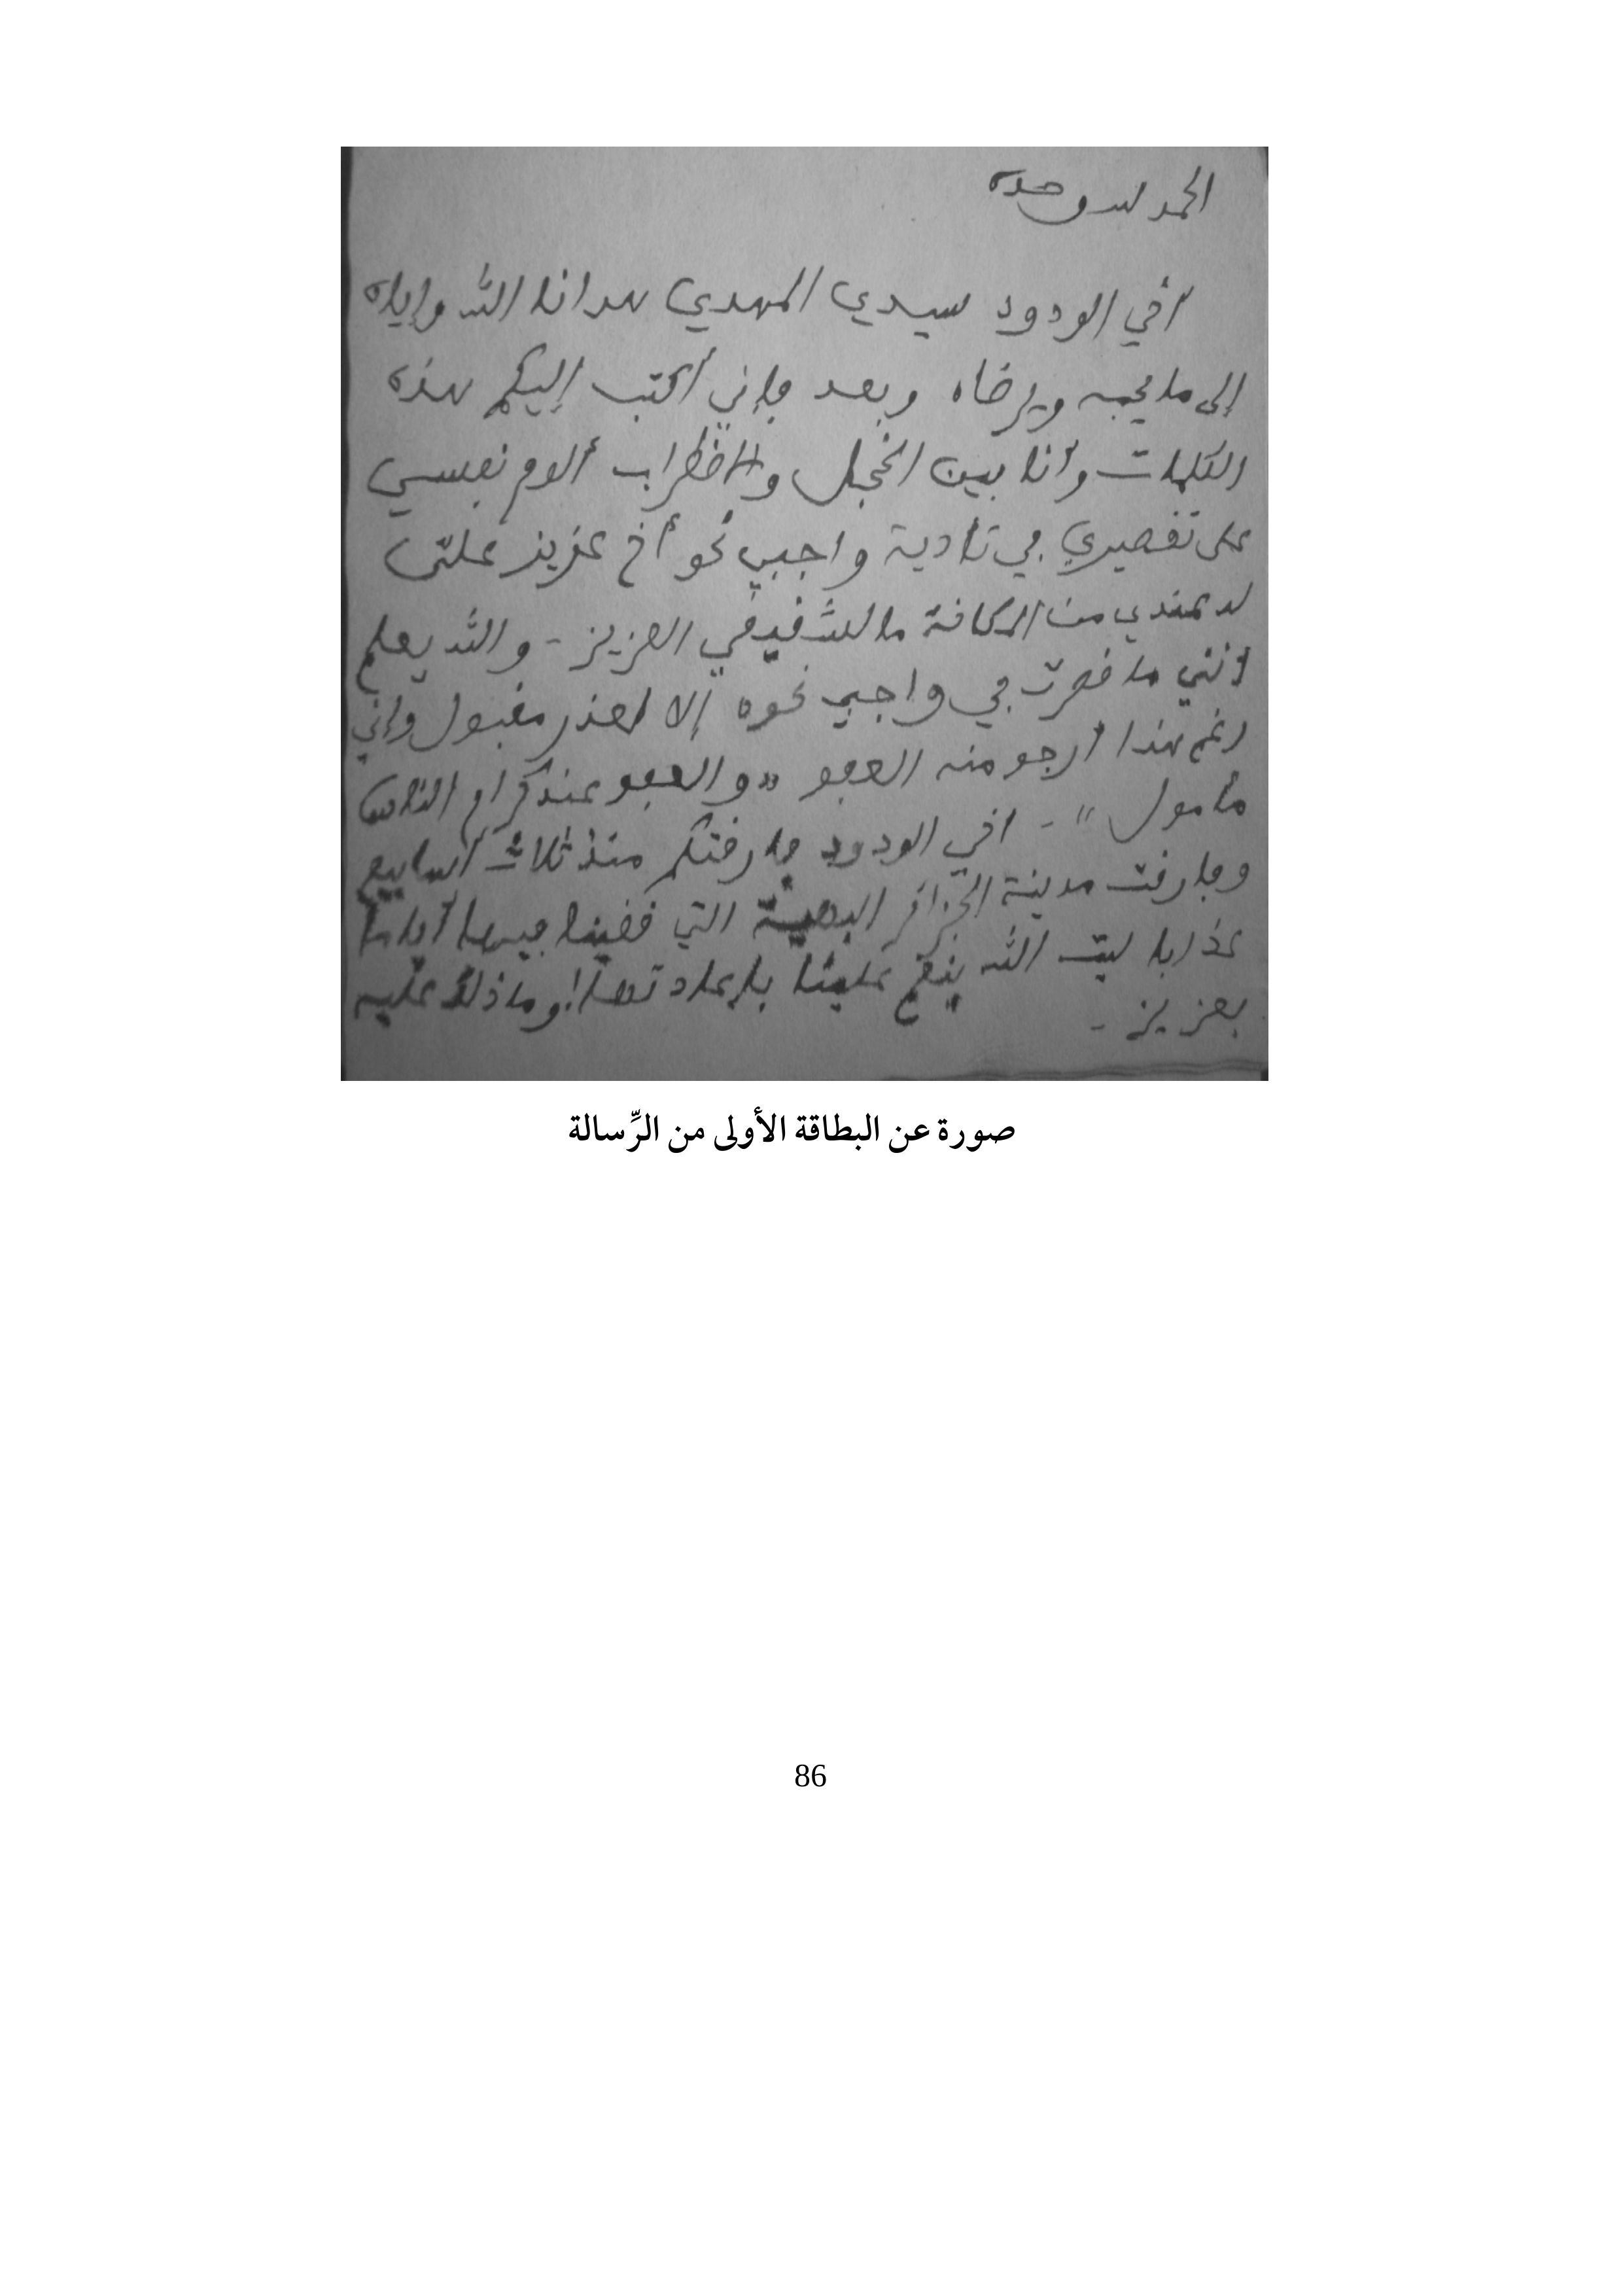 الحمد لله وحده
أخي الودود سيدي المهدي هدانا الله وإياه
إلى ما يحبه ويرضاه وبعد فإني أكتب إليكم هذه
الكلمات وأنا بين الخجل والاضطراب ألوم نفسي
على تقصيري في تأدية واجبي نحو أخ عزيز علي
له عندي من المكانة ما لشقيقي العزيز - والله يعلم
أنني ما قصرت في واجبي نحوه إلا لعذر مقبول وإني
رغم هذا أرجو منه العفو «والعفو عند كرام الناس
مأمول» - أخي الودود فارقتكم منذ ثلاث أسابيع
وفارقت مدينة الجزائر البهية التي قضينا فيها أياما
عذابا ليت الله ينعم علينا بإعادتها! وما ذلك عليه
بعزيز -
صورة عن البطاقة الأولى من الرِّسالة
86